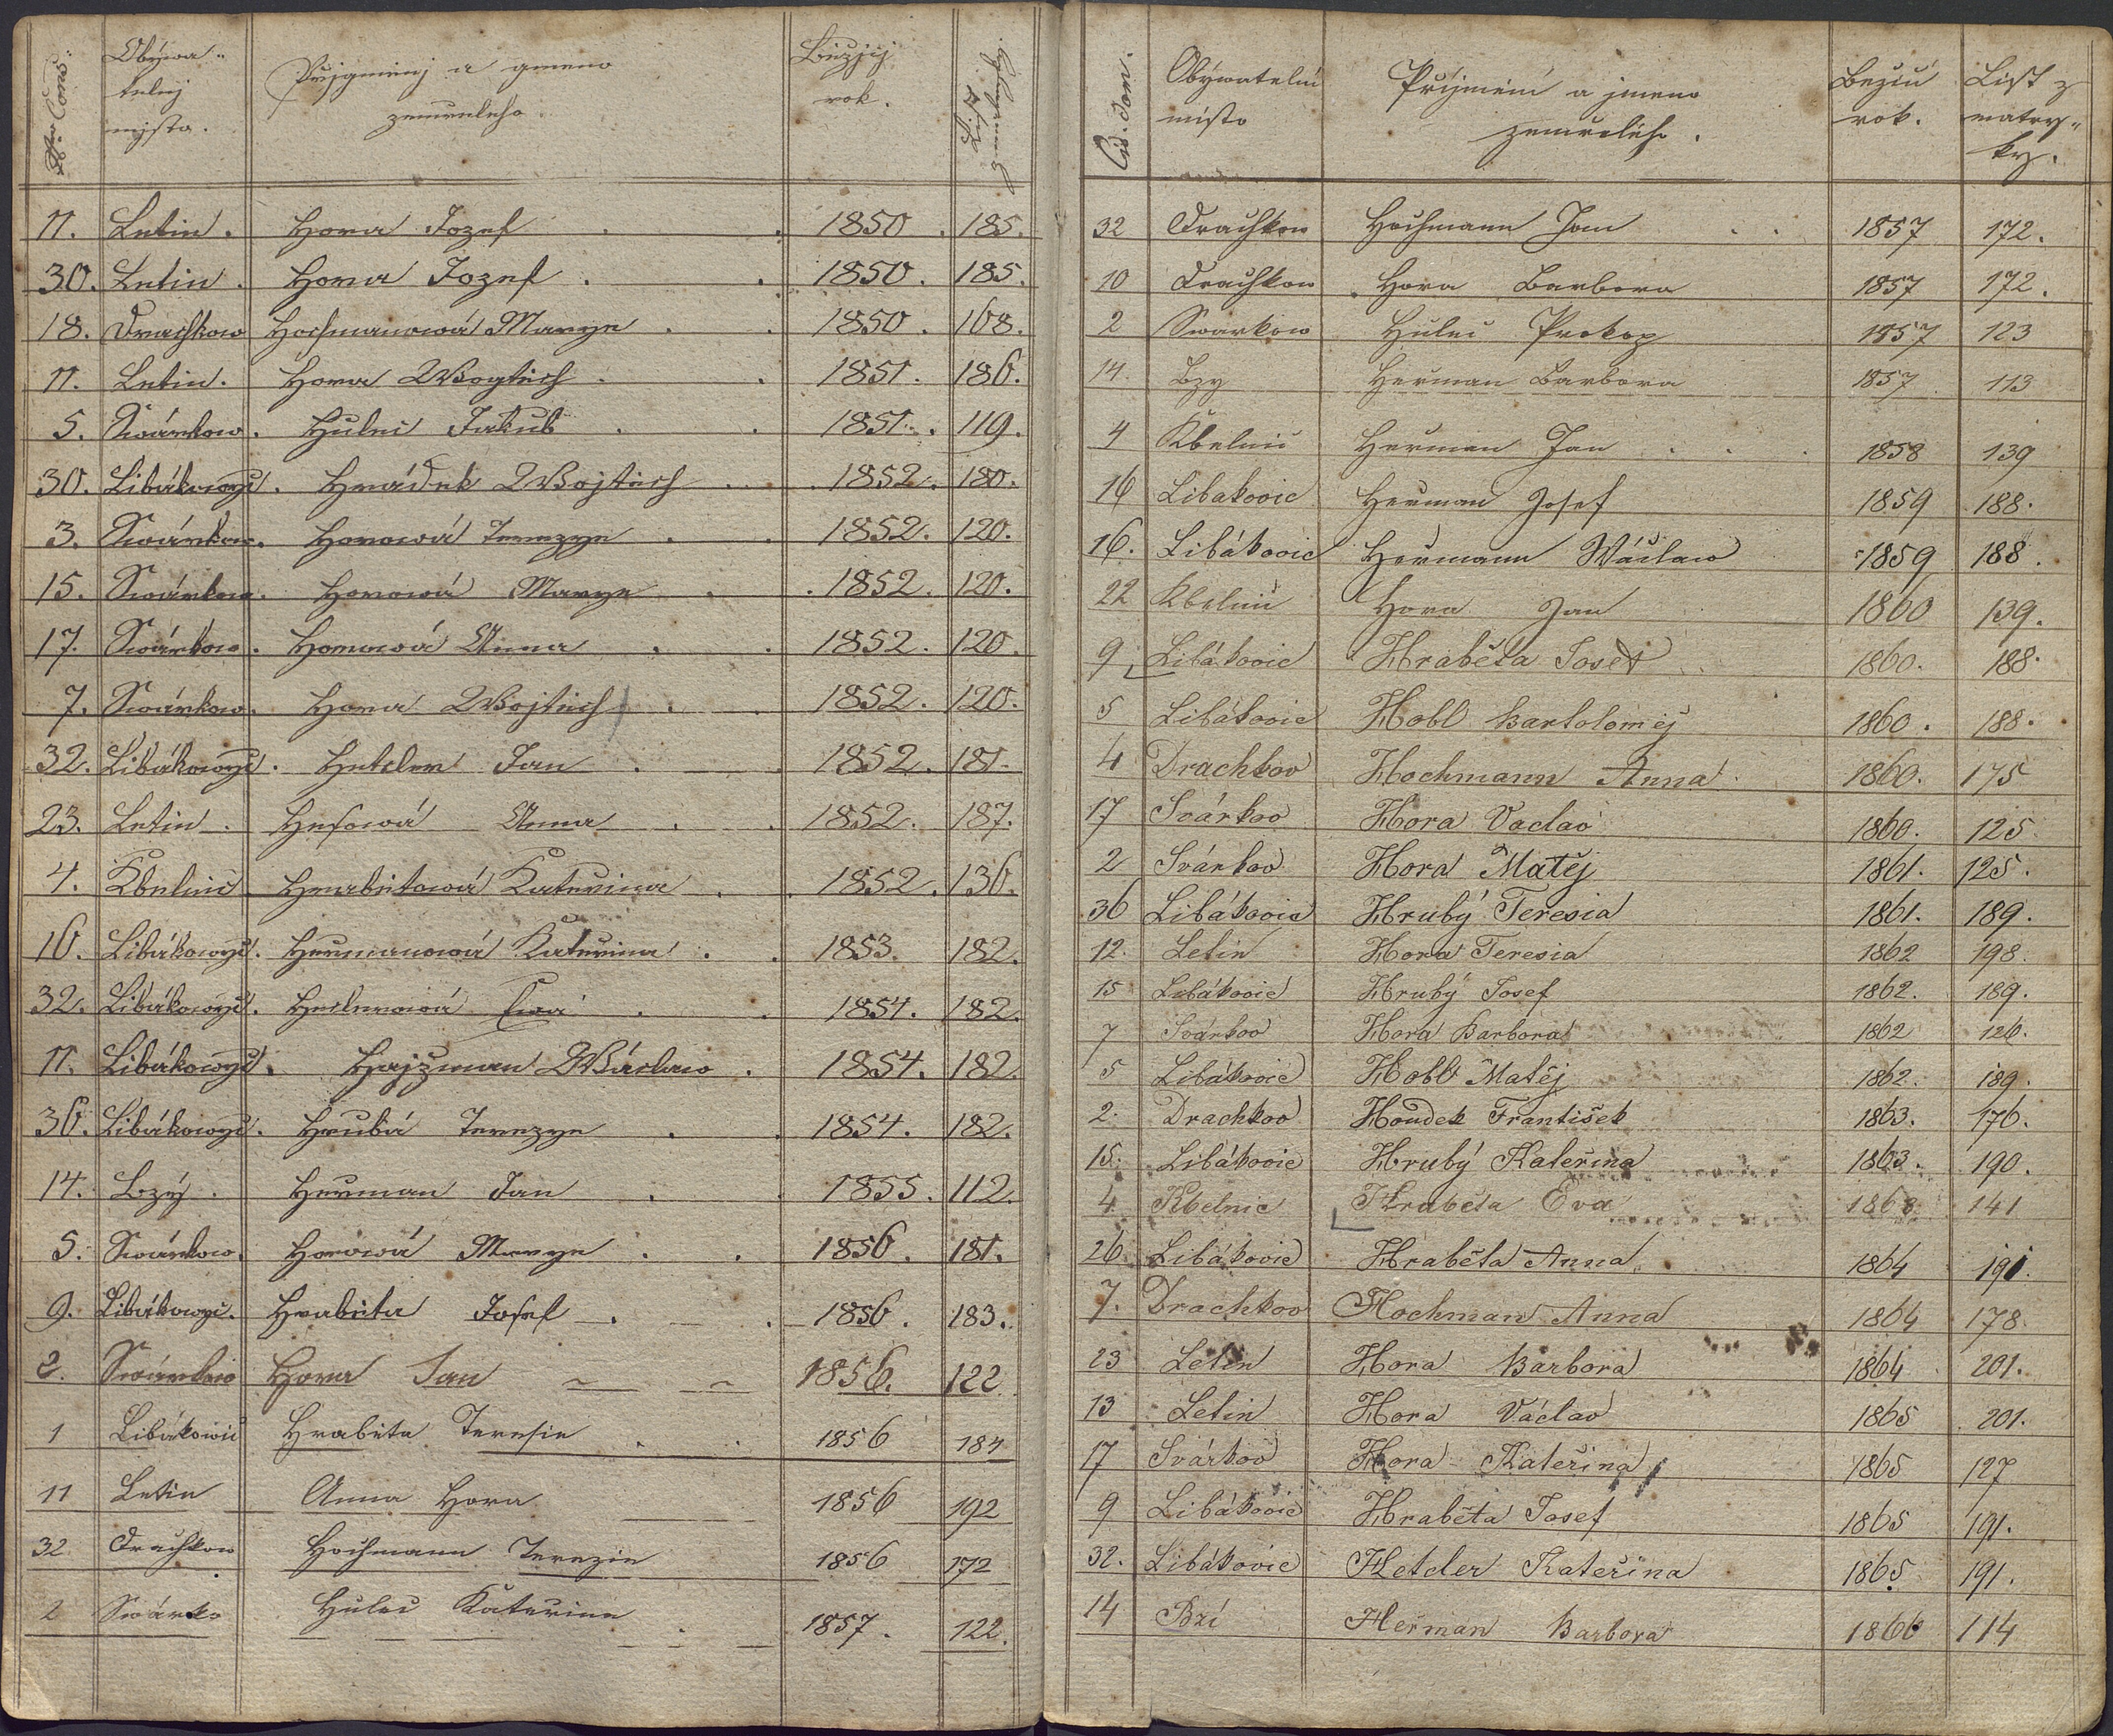 Nro Cons:
Obýwa-
telnj
mjsto.
Přjgměnj a gmeno
zemřelého.
Běžjcý
rok.
List
11. Letin. Hora Jozef 1850. 185.
30. Letin. Hora Jozef. 1850. 185.
18. Drachkow Hochmanowá Marye. 1850. 168.
11. Letin. Hora Wogtěch. 1851. 186.
5. Swárkow. Hulec Jakub. 1851. 119.
30. Libákowýc. Hrádek Wojtěch 1852. 180.
3. Swárkow. Horowá Terezye. 1852. 120.
15. Swárkow. Horowá Marye. 1852. 120.
17. Swárkow. Horowá Anna. 1852. 120.
7. Swárkow. Hora Wojtěch. 1852. 120.
32. Libákowýc. Hetcler Jan. 1852. 181.
23. Letin. Hesowá Anna. 1852. 187.
4. Kbelnic. Hrabětowá Kateřina. 1852. 136.
16. Libákowýc. Heřmanowá Kateřina. 1853. 182.
32. Libákowýc. Heclerowá Ewa. 1854. 182.
11. Libákowýc. Hajžman Wáclaw. 1854. 182.
36. Libákowýc. Hrubá Terezye. 1854. 182.
14. Bzý. Heřman Jan. 1855. 112.
5. Swárkow. Horowá Marye. 1856. 181.
9. Libákowýc. Hraběta Josef. 1856. 183.
2. Swárkow Hora Jan 1856. 122
1 Libákowic Hraběta Teresie 1856 184
11 Letin Anna Hora 1856 192
32 Drachkow Hochmann Terezie 1856 172
2 Swárko Hulec Kateřina 1857. 122.
Čís. dom.
Obýwatelní
místo
Příjmení a jmeno
zemřelého.
Bežicí
rok.
List z
matry-
ky.
32 Drachkow Hochmann Jan 1857 172.
10 Drachkow Hora Barbora 1857 172.
2 Swarkow Hulec Prokop 1857 123
14. Bzy Heřman Barbora 1857 113
4 Kbelnic Herman Jan 1858 139
16 Libakovic Heřman Josef 1859 188.
16. Libákovic Heřmann Wáclaw 1859 188.
22 Kbelnic Hora Jan 1860 139.
9 Libákovic Hraběta Josef 1860. 188.
5 Libákovic Hobl Bartoloměj 1860. 188.
4 Drachkov Hochmann Anna 1860. 175
17 Svárkov Hora Vaclav 1860. 125
2 Svárkov Hora Matěj 1861. 125.
36 Libákovic Hrubý Teresia 1861. 189.
12. Letin Hora Teresia 1862 198.
15 Libákovic Hrubý Josef 1862. 189.
7 Svarkov Hora Barbora 1862 126.
5 Libákovic Hobl Matěj 1862. 189.
2. Drachkov Houdek František 1863. 176.
15. Libákovic Hrubý Kateřina 1863. 190.
4. Kbelnic Hraběta Eva 1863. 141
26. Libákovic Hraběta Anna 1864 191.
7. Drachkov Hochman Anna 1864 178
23 Letin Hora Barbora 1864 201.
13 Letin Hora Václav 1865 201.
17 Svárkov Hora Kateřina 1865 127
9 Libákovic Hraběta Josef 1865 191.
32. Libákovic Hetcler Kateřina 1865 191.
14 Bzí Heřman Barbora 1866 114